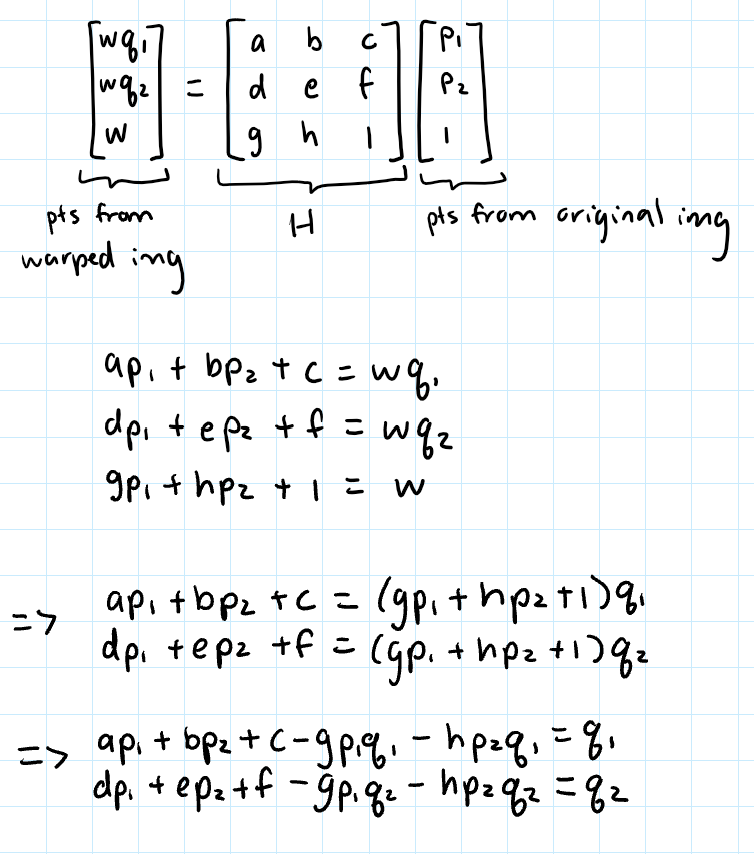 [wq₁] = [a b c] [p₁]
[wq₂] [d e f] [p₂]
[w] [g h 1] [1]
pts from warped img H pts from original img
ap₁ + bp₂ + c = wq₁
dp₁ + ep₂ + f = wq₂
gp₁ + hp₂ + 1 = w
=> ap₁ + bp₂ + c = (gp₁ + hp₂ + 1)q₁
dp₁ + ep₂ + f = (gp₁ + hp₂ + 1)q₂
=> ap₁ + bp₂ + c - gp₁q₁ - hp₂q₁ = q₁
dp₁ + ep₂ + f - gp₁q₂ - hp₂q₂ = q₂